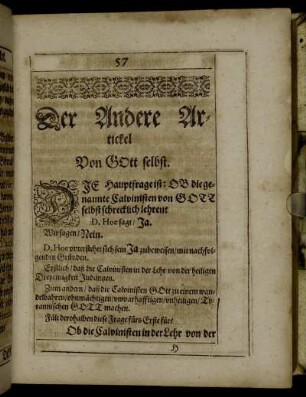 57
Der Andere Ar-
tickel
Von GOtt selbst.
DJE Hauptfrage ist: OB die ge-
nannte Calvinisten von GOTT
selbst schrecklich lehren?
D. Hoe sagt / Ja.
Wir sagen / Nein.
D. Hoe unterstehet sich sein Ja zubeweisen / mit nachfol-
genden Gründen.
Erstlich / daß die Calvinisten in der Lehr von der heiligen
Dreyeinigkeit
Zum andern / daß die Calvinisten GOtt zu einem wan-
delbahren / ohnmächtigen / unwarhafftigen / unheiligen / Ty-
rannischen GOTT machen.
Fält derohalben diese Frage fürs Erste für:
Ob die Calvinisten in der Lehr von der
H